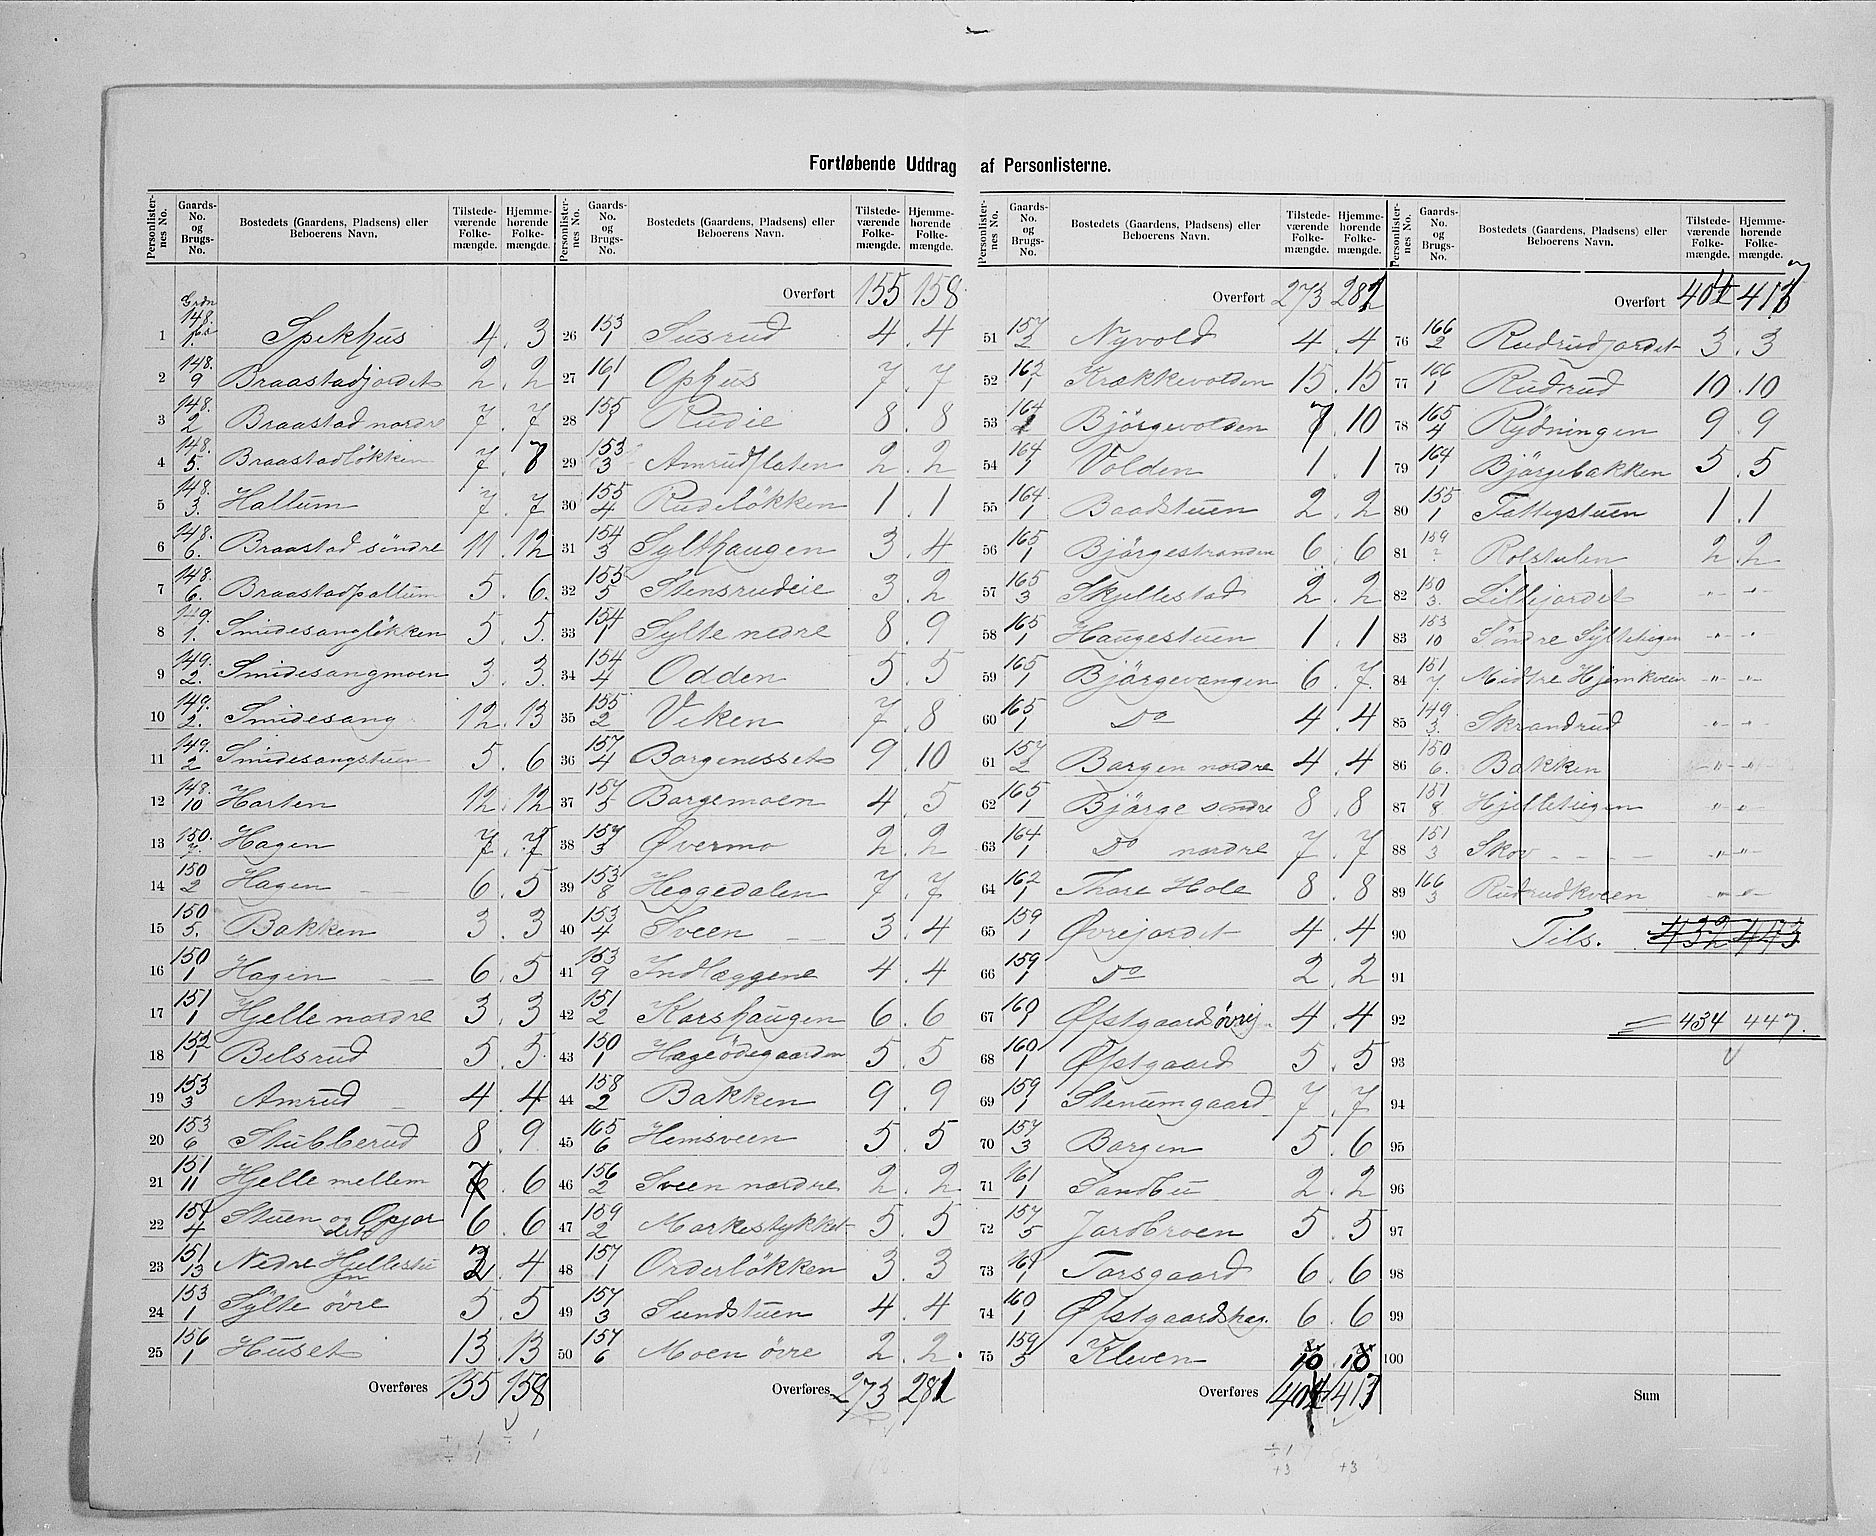 Fortløbende Uddrag af Personlisterne.
Personlister-nes No. | Gaards-No. og Brugs-No. | Bostedets (Gaardens, Pladsens) eller Beboerens Navn. | Tilstede-værende Folke-mængde. | Hjemme-hørende Folke-mængde.
1 148. Spikhus 4. 3
2 148. 9 Braastadjordet 2. 2
3 148. 2 Braastad nordre 7. 7
4 148. 5. Braastadløkken 7. 8
5 148. 3. Hallum 7. 7
6 148. 6. Braastad søndre 11. 12
7 148. 6. Braastadhallum 5. 6.
8 149. 1. Smidesangløkken 5. 5.
9 149. 2. Smidesangmoen 3. 3.
10 149. 2. Smidesang 12. 13
11 149. 2 Smidesangstuen 5. 6
12 148. 10 Harten 12. 12
13 150. Hagen 7. 7
14 150 2 Hagen 6. 5
15 150 5. Bakken 3. 3
16 150 1 Hagen 6. 5
17 151 1 Hjelle nordre 3. 3
18 152 1 Belsrud 5. 5
19 153 3 Amrud 4. 4
20 153 6 Stubberud 8. 9
21 151 11 Hjelle mellem 6
22 151 4 Stuen og Opjordet 6. 6
23 151 13 Nedre Hjellestuen 4
24 153 1 Sylte øvre 5. 5
25 156 1 Huset 13. 13
Overføres 155 158
Personlister-nes No. | Gaards-No. og Brugs-No. | Bostedets (Gaardens, Pladsens) eller Beboerens Navn. | Tilstede-værende Folke-mængde. | Hjemme-hørende Folke-mængde.
Overført 155 158
26 153 1 Susrud 4. 4
27 161 1 Ophus 7. 7
28 155 1 Rudie 8. 8
29 153 3 Amrudflaten 2. 2
30 155 4 Rudeløkken 1. 1
31 154 3 Sylthaugen 3. 4
32 155 5 Stensrudeie 3. 2
33 154 1 Sylte nedre 8. 9
34 154 4 Odden 5. 5
35 155 2 Viken 7. 8
36 157 4 Borgenesset 9. 10
37 157 5 Borgemoen 4. 5
38 157 3 Øvermo 2. 2
39 153 8 Heggedalen 7. 7
40 153 4 Sveen 3. 4
41 153 9 Indlæggene 4. 4
42 151 2 Korshaugen 6. 6
43 150 1 Hageødegaarden 5. 5
44 158 2 Bakken 9. 9
45 165 6 Hemsveen 5. 5
46 156 2 Sveen nordre 2. 2
47 159 2 Markestykket 5. 5
48 157 1 Orderløkken 3. 3
49 157 3 Sundstuen 4. 4
50 157 6 Moen øvre 2. 2.
Overføres 273 281
Personlister-nes No. | Gaards-No. og Brugs-No. | Bostedets (Gaardens, Pladsens) eller Beboerens Navn. | Tilstede-værende Folke-mængde. | Hjemme-hørende Folke-mængde.
Overført 273 281
51 157 2 Nyvold 4. 4
52 162 1 Krækkevolden 15. 15
53 164 Bjørgevolden 7. 10
54 164 1 Volden 1. 1
55 164 1 Baadstuen 2. 2
56 165 1 Bjørgestranden 6. 6
57 165 3 Skjellestad 2. 2
58 165 1 Haugestuen 1. 1
59 165 1 Bjørgevangen 6. 7
60 165 1 Do 4. 4
61 157 2 Borgen nordre 4. 4
62 165 1 Bjørge søndre 8. 8
63 164 1 Do nordre 7. 7
64 162 1 Thore Hole 8. 8
65 159 1 Øvrejordet 4. 4
66 159 1 Do 2. 2
67 160 1 Øfstgaard øvrej. 4. 4
68 160 1 Øfstgaard 5. 5
69 159 1 Stenumgaard 7. 7
70 157 3 Borgen 5. 6
71 161 1 Sandbu 2. 2
72 157 5 Jordbroen 5. 5
73 161 1 Torsgaard 6. 6
74 160 1 Øfstgaardshag. 6. 6
75 159 5 Kleven 10. 10
Overføres 404 417
Personlister-nes No. | Gaards-No. og Brugs-No. | Bostedets (Gaardens, Pladsens) eller Beboerens Navn. | Tilstede-værende Folke-mængde. | Hjemme-hørende Folke-mængde.
Overført 404 417
76 166 2 Rudrudjordet 3. 3
77 166 1 Rudrud 10. 10
78 165 4 Rydningen 9. 9
79 164 1 Bjørgebakken 5. 5
80 155 1 Fattigstuen 1. 1
81 159 ? Rolstulen 2. 2
82 150 3. Lillejordet -"- -"-
83 153 10 Søndre Syltehagen -"- -"-
84 151 7. Midtre Hjemkveen -"- -"-
85 149 3. Skrandrud -"- -"-
86 150 6. Bakken -"- -"-
87 151 8. Hjellehagen -"- -"-
88 151 3 Skov -"- -"-
89 166 3 Rudrudkveen -"- -"-
90 Tils. 432 443
91
92 434 447.
93
94
95
96
97
98
99
100
Sum
÷ 1 ÷ 1
÷ 1
÷ 1
+3 +3